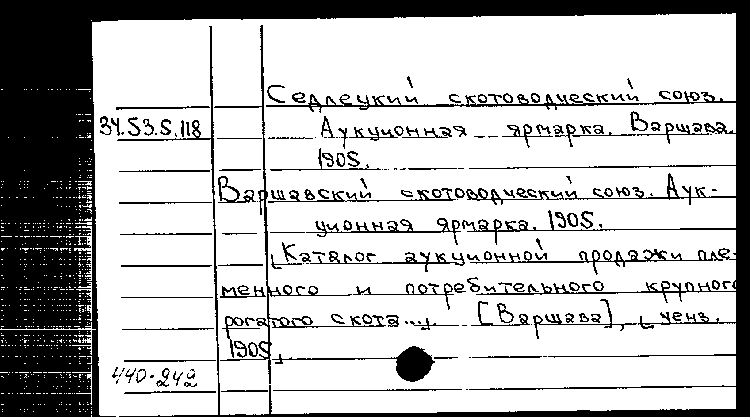 Седлецкий скотоводческий союз.
34.53.5.118
Аукционная ярмарка. Варшава.
1905.
Варшавский скотоводческий союз. Аук-
ционная ярмарка. 1905.
[Каталог аукционной продажи пле-
менного и потребительного крупного
рогатого скота...]. [Варшава], [ценз.
1905]
440-242